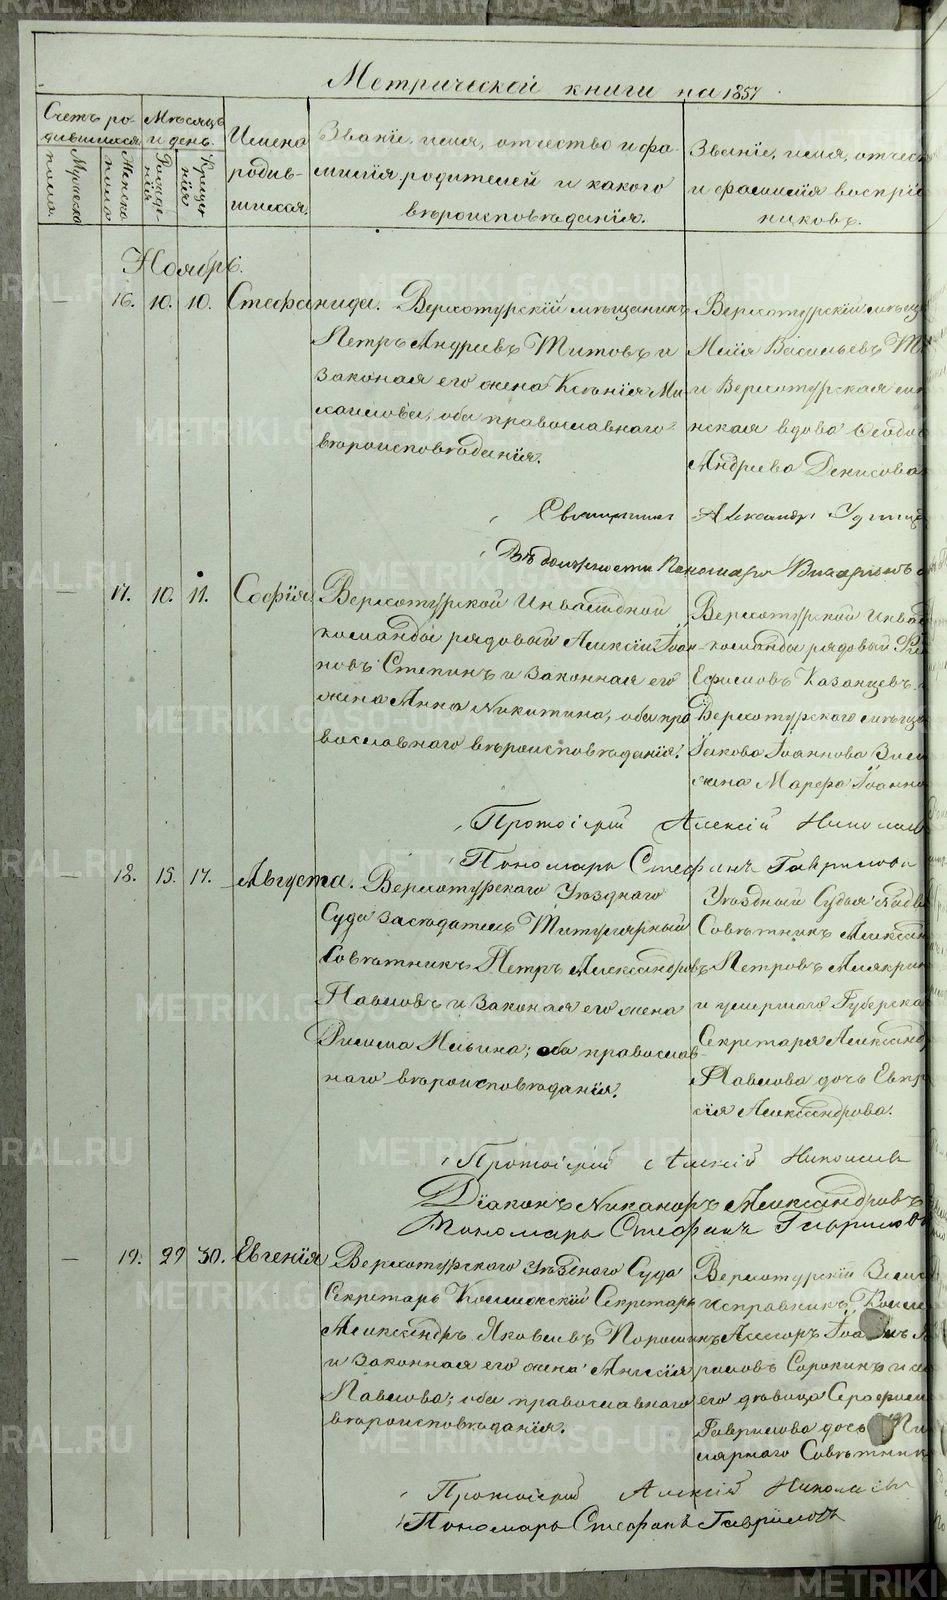 Метрической книги на 1857
Счетъ ро-
дившихся.
Мѣсяцъ
и день.
Мужеска
пола.
Женска
пола.
Рожде-
нія
Креще-
нія
Имена
родив-
шихся.
Званіе, имя, отчество и фа-
милія родителей и какого
вѣроисповѣданія.
Званіе, имя, отчест
и фамилія воспріе
никовъ.
Ноябрь.
— 16. 10. 10. Стефанида.
Верхотурскій мѣщанинъ
Петръ Андреевъ Титовъ и
законая его жена Ксенія Ми-
хаилова, оба православнаго
вѣроисповѣданія.
Верхотурскій мѣща
Илія Васильевъ
и Верхотурская
нская вдова Ѳеодос
Андреева Денисова
Священникъ Александръ
Въ должности Пономаря
— 17. 10. 11. Софія.
Верхотурской Инвалидной
команды рядовый Алексій Іоан-
новъ Степинъ и законная его
жена Анна Никитина, оба пра
вославнаго вѣроисповѣданія.
Верхотурской Инвал
команды рядовый
Ефимовъ Казанцевъ
Верхотурскаго мѣща
Іакова Іоаннова
жена Марѳа Іоанно
Протоіерей Алексій Николаев
Пономарь Стефанъ Гаврилова
— 18. 15. 17. Августа.
Верхотурскаго Уѣзднаго
Суда засѣдатель Титулярный
Совѣтникъ Петръ Александровъ
Павловъ и законая его жена
Ильина; оба православ-
наго вѣроисповѣданія.
Уѣздный Судья Надв
Совѣтникъ Александ
Петровъ
и умершаго Губернска
Секретаря Александ
Павлова дочь Евпр
сія Александрова.
Протоіерей Алексій Николаев
Діаконъ Никаноръ Александровъ
Пономарь Стефанъ Гавриловъ
— 19. 29 30. Евгенія
Верхотурскаго Уѣзднаго Суда
Секретарь Коллежскій Секретарь
Александръ Яковлевъ Порошинъ
и законная его жена
Павлова; оба православнаго
вѣроисповѣданія.
Верхотурскій Земс
исправникъ Колле
Ассоръ
риловъ Сорокинъ и
его дѣвица Серафим
Гаврилова дочь
лярнаго Совѣтник
Протоіерей Алексій Николаевъ
Пономарь Стефанъ Гавриловъ
METRIKI.GASO-URAL.RU